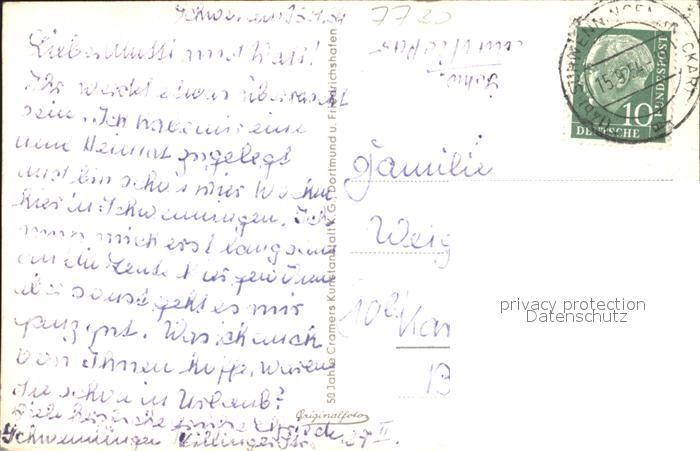 Schwenningen 15.9.54
Liebe Mutti und Vati!
Ihr werdet etwas überrascht
sein. Ich habe mir eine
neue Heimat zugelegt
und bin schon vier Wochen
hier in Schwenningen. Ich
muss mich erst langsam
an die Leute hier gewöhnen
aber sonst geht es mir
ganz gut. Was ich auch
von Ihnen hoffe, waren
Sie schon in Urlaub?
Viele herzliche
Schwenningen Villinger Str. 27 II.
7730
am Neckar
Familie
Weig
50 Jahre Cramers Kunstanstalt K.G. Dortmund u. Friedrichshafen
Originalfoto
15.9.54
10
DEUTSCHE
BUNDESPOST
privacy protection
Datenschutz